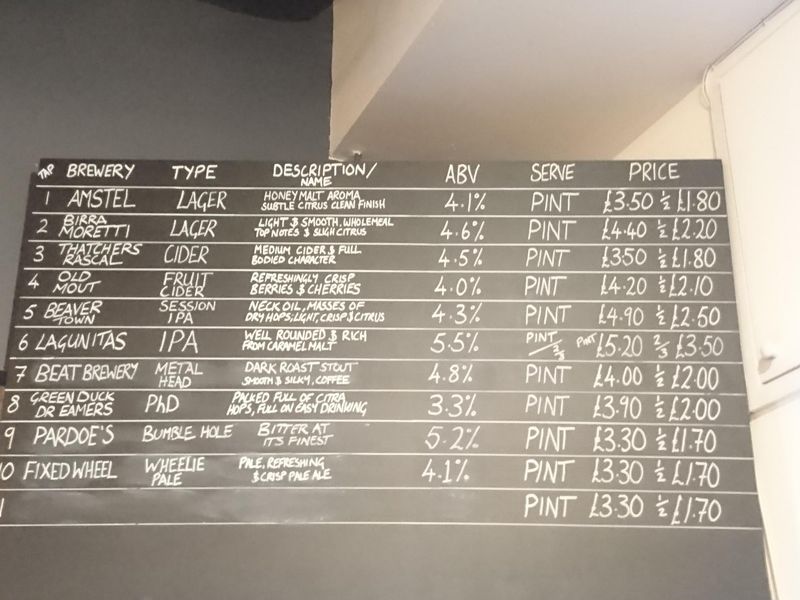 TAP BREWERY TYPE DESCRIPTION/ NAME ABV SERVE PRICE
1 AMSTEL LAGER HONEY MALT AROMA SUBTLE CITRUS CLEAN FINISH 4.1% PINT £3.50 ½ £1.80
2 BIRRA MORETTI LAGER LIGHT & SMOOTH, WHOLEMEAL TOP NOTES & SLIGH CITRUS 4.6% PINT £4.40 ½ £2.20
3 THATCHERS RASCAL CIDER MEDIUM CIDER & FULL BODIED CHARACTER 4.5% PINT £3.50 ½ £1.80
4 OLD MOUT FRUIT CIDER REFRESHINGLY CRISP BERRIES & CHERRIES 4.0% PINT £4.20 ½ £2.10
5 BEAVER TOWN SESSION IPA NECK OIL, MASSES OF DRY HOPS, LIGHT, CRISP & CITRUS 4.3% PINT £4.90 ½ £2.50
6 LAGUNITAS IPA WELL ROUNDED & RICH FROM CARAMEL MALT 5.5% PINT/⅔ PINT £5.20 ⅔ £3.50
7 BEAT BREWERY METAL HEAD DARK ROAST STOUT SMOOTH & SILKY, COFFEE 4.8% PINT £4.00 ½ £2.00
8 GREEN DUCK DR EAMERS PhD PACKED FULL OF CITRA HOPS, FULL ON EASY DRINKING 3.3% PINT £3.90 ½ £2.00
9 PARDOE'S BUMBLE HOLE BITTER AT IT'S FINEST 5.2% PINT £3.30 ½ £1.70
10 FIXED WHEEL WHEELIE PALE PALE, REFRESHING & CRISP PALE ALE 4.1% PINT £3.30 ½ £1.70
1 PINT £3.30 ½ £1.70